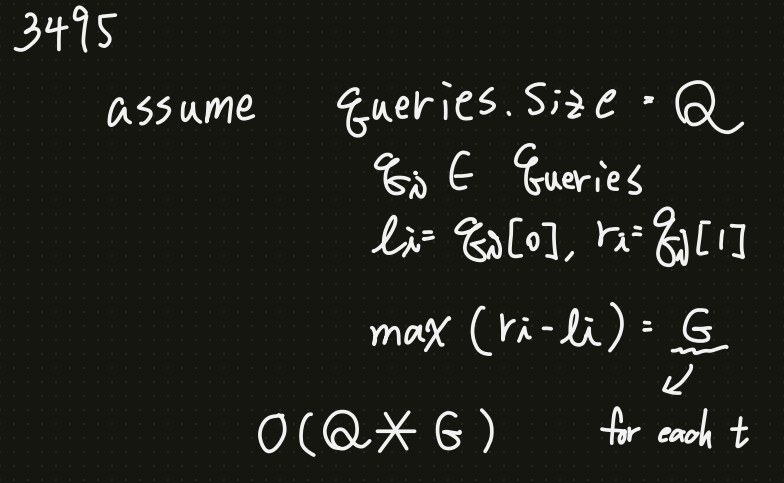 3495
assume queries.size = Q
qi ∈ queries
li = qi[0], ri = qi[1]
max (ri - li) = G
↙
O(Q * G) for each t